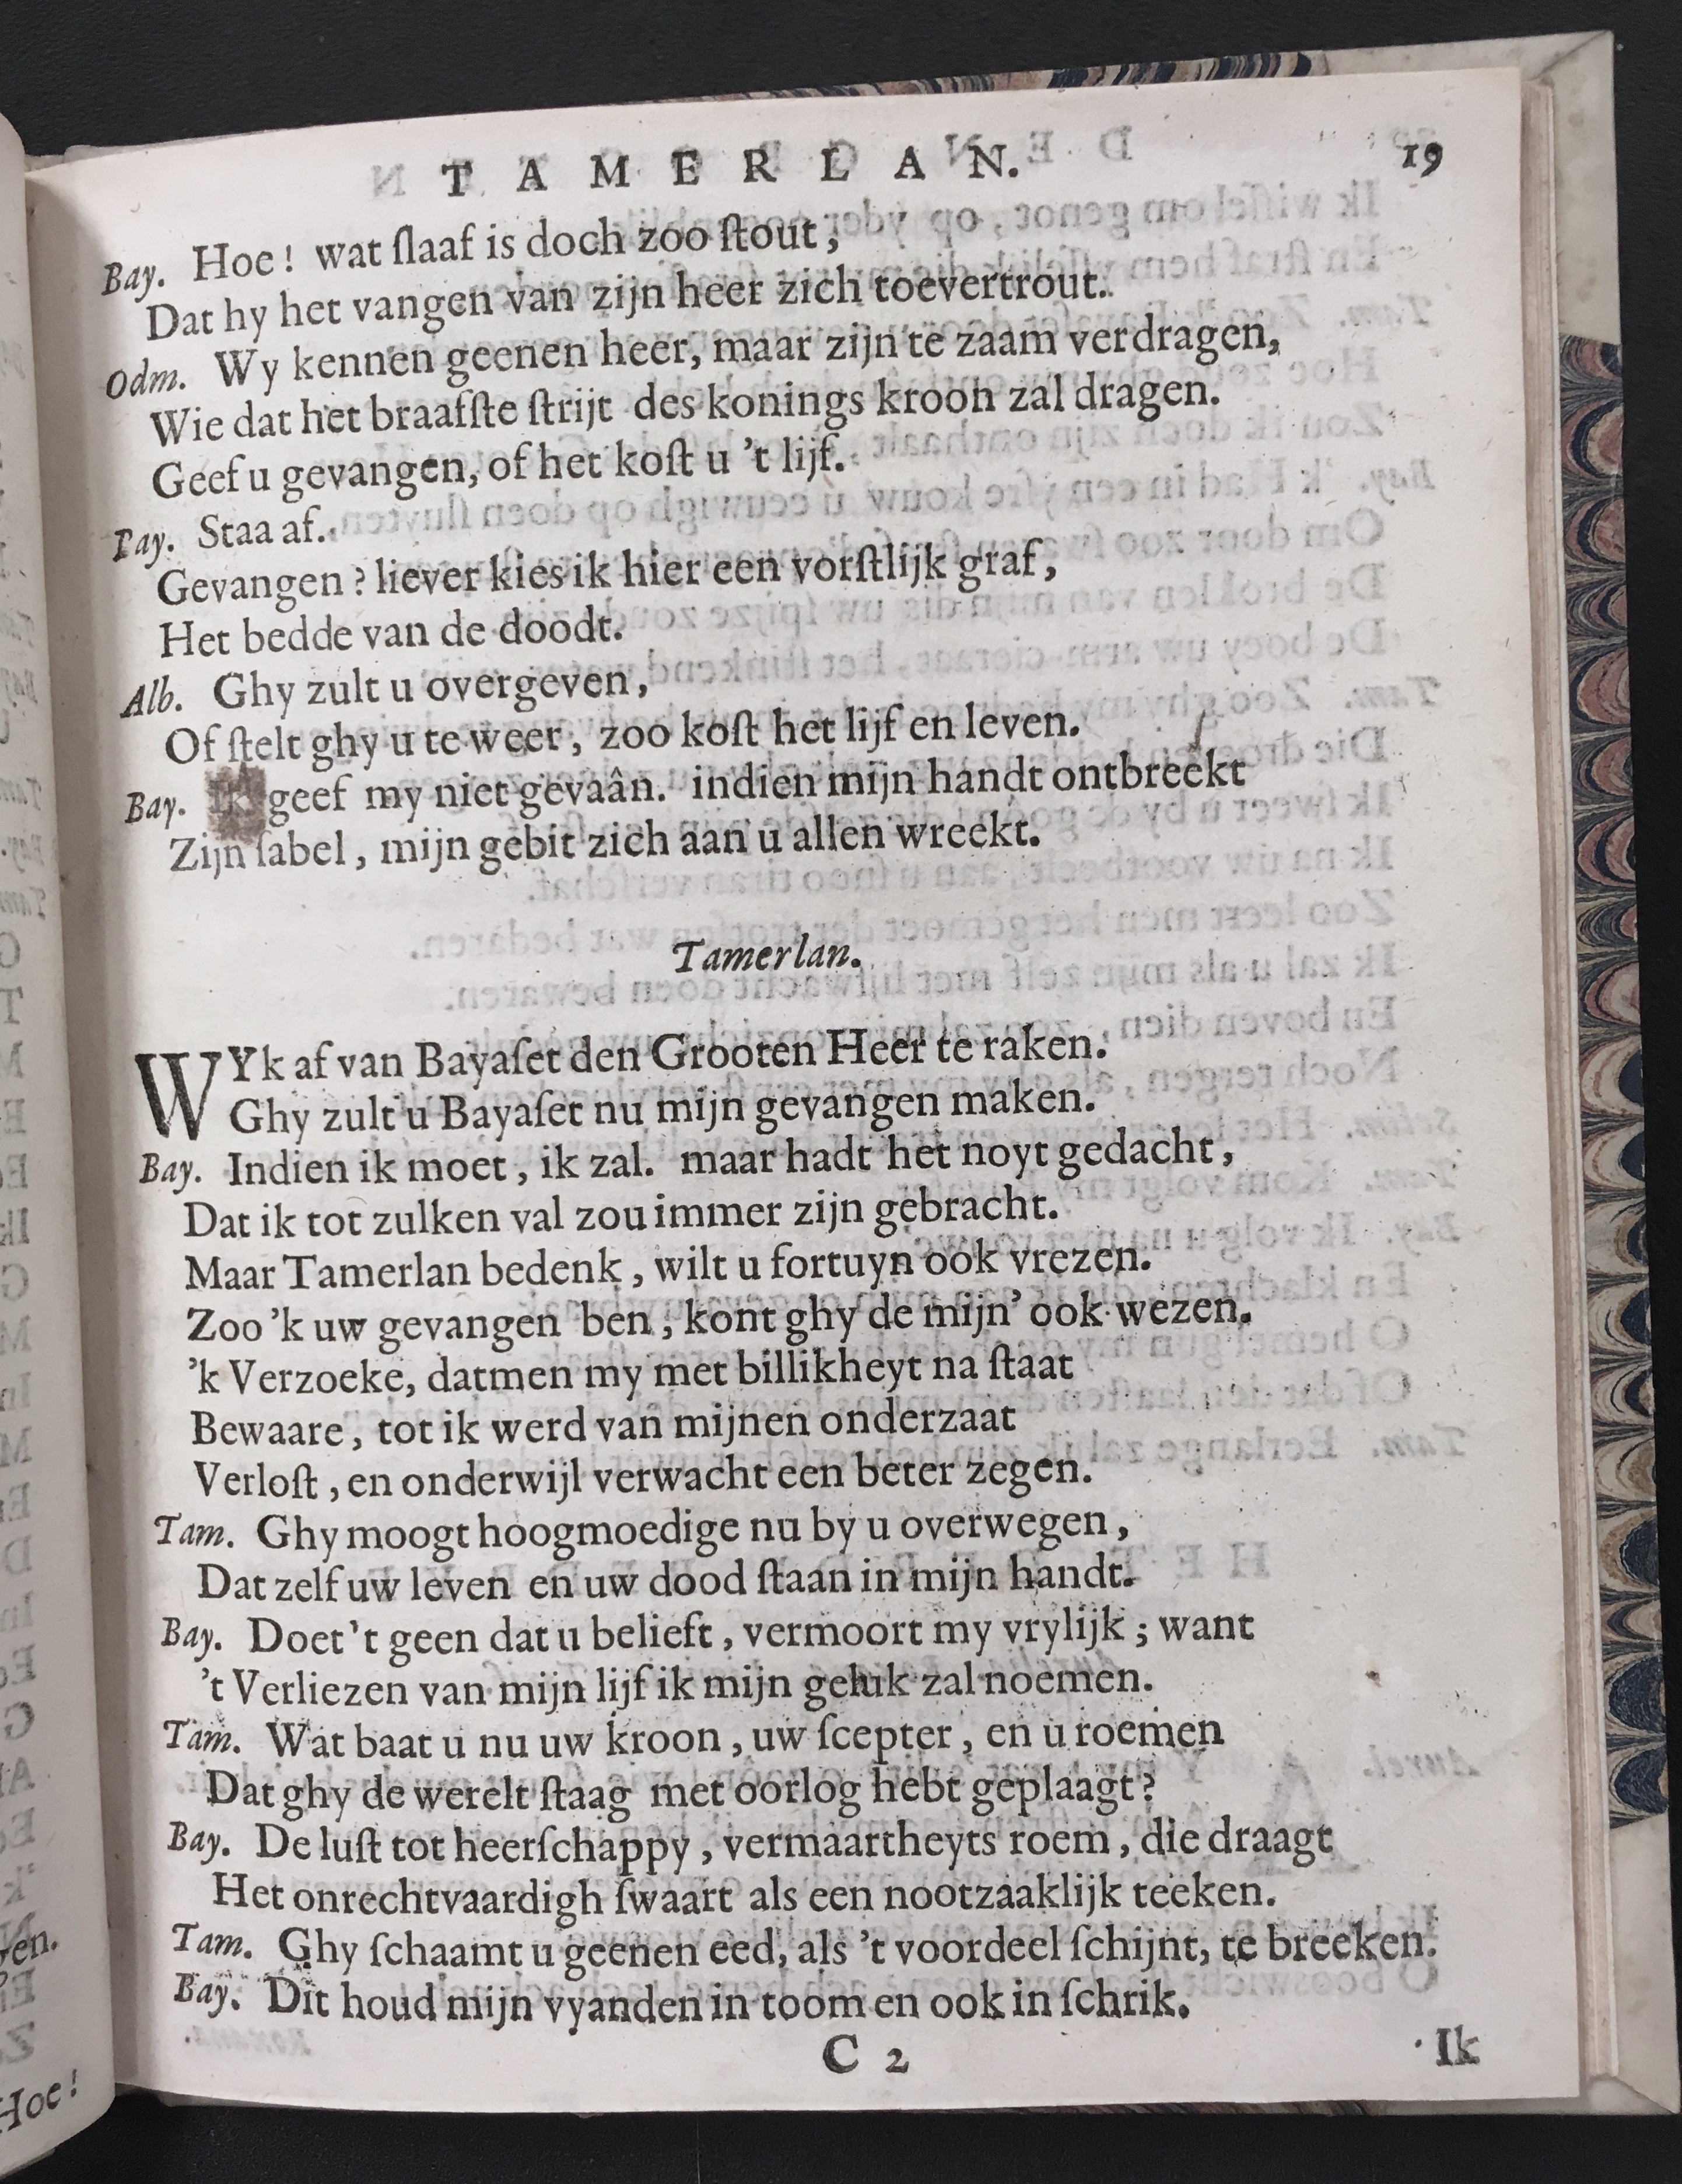 TAMERLAN. 19
Bay. Hoe! wat ſlaaf is doch zoo ſtout,
Dat hy het vangen van zijn heer zich toevertrout.
Odm. Wy kennen geenen heer, maar zijn te zaam verdragen,
Wie dat het braafſte ſtrijt des konings kroon zal dragen.
Geef u gevangen, of het koſt u 't lijf.
Bay. Staa af.
Gevangen? liever kies ik hier een vorſtlijk graf,
Het bedde van de doodt.
Alb. Ghy zult u overgeven,
Of ſtelt ghy u te weer, zoo koſt het lijf en leven.
Bay. Ik geef my niet gevaân. indien mijn handt ontbreekt
Zijn ſabel, mijn gebit zich aan u allen wreekt.
Tamerlan.
WYk af van Bayaſet den Grooten Heer te raken.
Ghy zult u Bayaſet nu mijn gevangen maken.
Bay. Indien ik moet, ik zal. maar hadt het noyt gedacht,
Dat ik tot zulken val zou immer zijn gebracht.
Maar Tamerlan bedenk, wilt u fortuyn ook vrezen.
Zoo 'k uw gevangen ben, kont ghy de mijn' ook wezen.
'k Verzoeke, datmen my met billikheyt na ſtaat
Bewaare, tot ik werd van mijnen onderzaat
Verloſt, en onderwijl verwacht een beter zegen.
Tam. Ghy moogt hoogmoedige nu by u overwegen,
Dat zelf uw leven en uw dood ſtaan in mijn handt.
Bay. Doet 't geen dat u belieft, vermoort my vrylijk; want
't Verliezen van mijn lijf ik mijn geluk zal noemen.
Tam. Wat baat u nu uw kroon, uw ſcepter, en u roemen
Dat ghy de werelt ſtaag met oorlog hebt geplaagt?
Bay. De luſt tot heerſchappy, vermaartheyts roem, die draagt
Het onrechtvaardigh ſwaart als een nootzaaklijk teeken.
Tam. Ghy ſchaamt u geenen eed, als 't voordeel ſchijnt, te breeken.
Bay. Dit houd mijn vyanden in toom en ook in ſchrik.
C 2 Ik